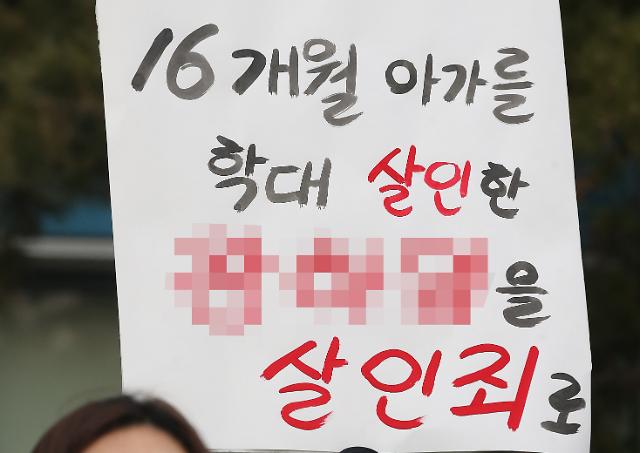 16개월 아가를
학대 살인한
을
살인죄로